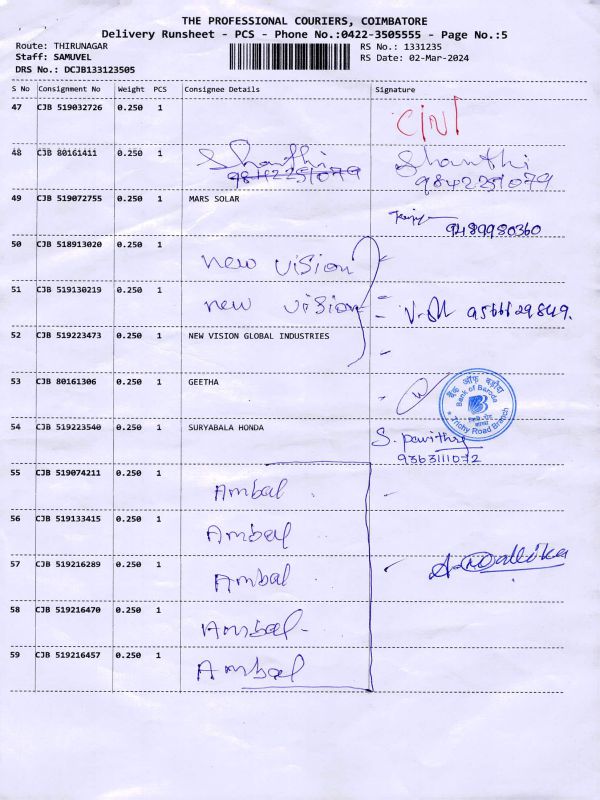 THE PROFESSIONAL COURIERS, COIMBATORE
Delivery Runsheet - PCS - Phone No.:0422-3505555 - Page No.:5
Route: THIRUNAGAR
RS No.: 1331235
Staff: SAMUVEL
RS Date: 02-Mar-2024
DRS No.: DCJB133123505
S No Consignment No Weight PCS Consignee Details Signature
47 CJB 519032726 0.250 1
48 CJB 80161411 0.250 1 Shanthi Shanthi
9842251079 9842251079
49 CJB 519072755 0.250 1 MARS SOLAR
9489980360
50 CJB 518913020 0.250 1 new vision
51 CJB 519130219 0.250 1 new vision 9566629849.
52 CJB 519223473 0.250 1 NEW VISION GLOBAL INDUSTRIES
53 CJB 80161306 0.250 1 GEETHA
बैंक ऑफ़ बड़ौदा
Bank of Baroda
Trichy Road Branch
54 CJB 519223540 0.250 1 SURYABALA HONDA S. pavithra
9363111072
55 CJB 519074211 0.250 1 Ambal
56 CJB 519133415 0.250 1 Ambal
57 CJB 519216289 0.250 1 Ambal
58 CJB 519216470 0.250 1 Ambal
59 CJB 519216457 0.250 1 Ambal